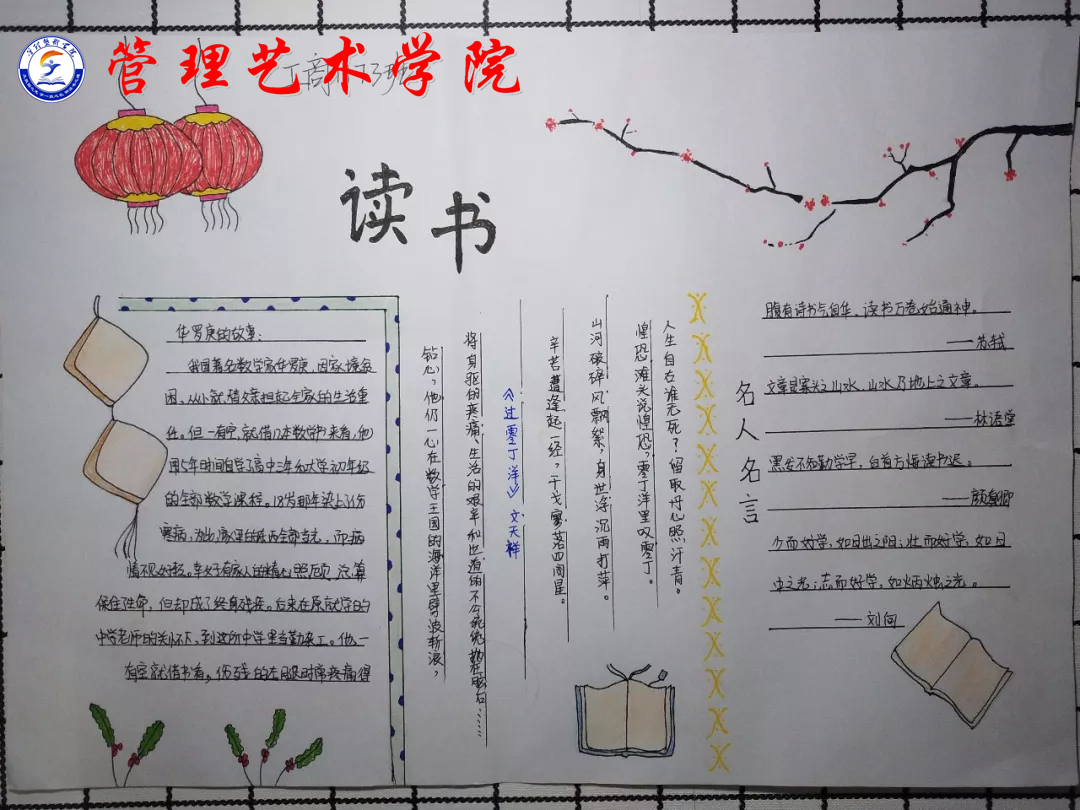 管理艺术学院
读书
华罗庚的故事:
我国著名数学家华罗庚,因家境贫
困,从小就替父亲担起全家的生活重
任。但一有空,就借几本数学书来看,他
用5年时间自学了高中三年和大学初年级
的全部数学课程。18岁那年染上了伤
寒病,为此,家里的钱两全部当光,而病
情不见好转。幸好有家人的精心照顾,总算
保住了性命,但却成了终身残疾。后来在原就学的
中学老师的关怀下,到这所中学里当勤杂工。他一
有空就借书看,伤残的左腿时常疼痛得
钻心,他仍一心在数学王国的海洋里劈波斩浪,
将身躯的疼痛、生活的艰辛和世道的不公统统抛在脑后……
《过零丁洋》 文天祥
辛苦遭逢起一经,干戈寥落四周星。
山河破碎风飘絮,身世浮沉雨打萍。
惶恐滩头说惶恐,零丁洋里叹零丁。
人生自古谁无死?留取丹心照汗青。
名人名言
腹有诗书气自华,读书万卷始通神。
——苏轼
文章是案头之山水,山水乃地上之文章。
——林语堂
黑发不知勤学早,白首方悔读书迟。
——颜真卿
少而好学,如日出之阳;壮而好学,如日
中之光;志而好学,如炳烛之光。
——刘向